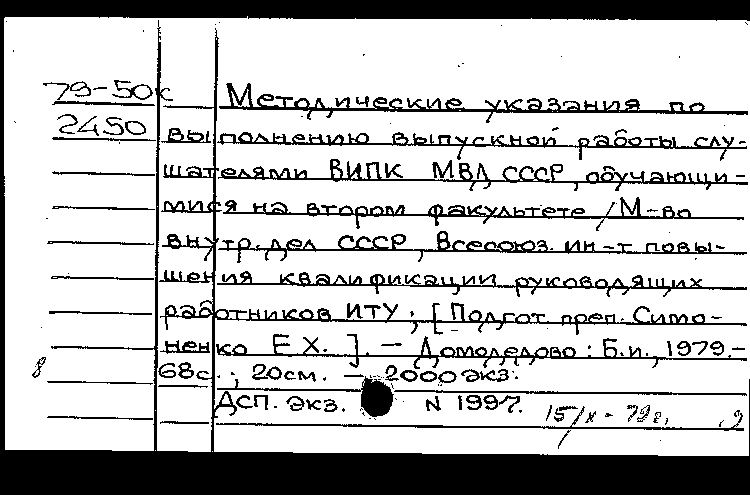 79-50к Методические указания по
2450 выполнению выпускной работы слу-
шателями ВИПК МВД СССР, обучающи-
мися на втором факультете / М-во
внутр. дел СССР, Всесоюз. ин-т повы-
шения квалификации руководящих
работников ИТУ; [Подгот. преп. Симо-
ненко Е.Х.]. – Домодедово: Б.и., 1979.–
8 68с.; 20см. – 2000 экз.
Дсп. экз. N 1997. 15/X - 79г.